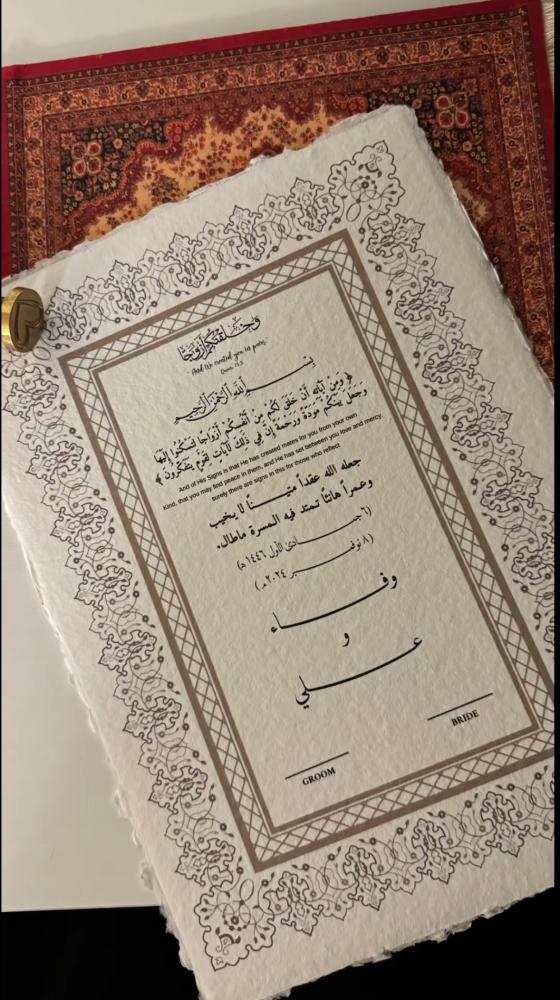 وَخَلَقْنَاكُمْ أَزْوَاجًا
And We created you in pairs.
بسم الله الرحمن الرحيم
﴿ وَمِنْ آيَاتِهِ أَنْ خَلَقَ لَكُم مِّنْ أَنفُسِكُمْ أَزْوَاجًا لِّتَسْكُنُوا إِلَيْهَا
وَجَعَلَ بَيْنَكُم مَّوَدَّةً وَرَحْمَةً إِنَّ فِي ذَٰلِكَ لَآيَاتٍ لِّقَوْمٍ يَتَفَكَّرُونَ ﴾
And of His Signs is that He has created mates for you from your own
Kind, that you may find peace in them, and He has set between you love and mercy.
surely there are signs in this for those who reflect
جعله الله عقداً متيناً لا يخيب
وعمراً هانئاً تمتد فيه المسرة ماطال.
(٦ جمادى الأول ١٤٤٦ هـ)
(٨ نوفمبر ٢٠٢٤ م)
وفاء
و
علي
GROOM
BRIDE